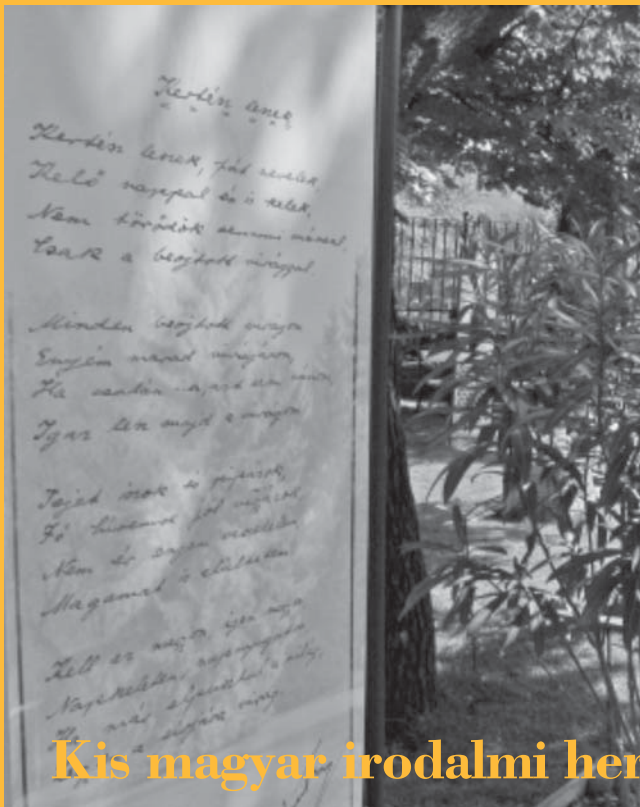 Kertész leszek
Kertész leszek, fát nevelek,
Kelő nappal én is kelek,
Nem törődök semmi mással,
Csak a beojtott virággal.
Minden beojtott virágom
virágáron,
Ha csalán azt sem bánom,
Igaz lesz majd a virágom.
Tejet iszok és pipázok,
jól vigyázok,
Nem ér engem veszedelem,
Magamat is elültetem.
Kell ez nagyon, igen nagyon,
Napkeleten, napnyugaton
Ha már elpusztul a világ,
a sírjára virág.
Kis magyar irodalmi her